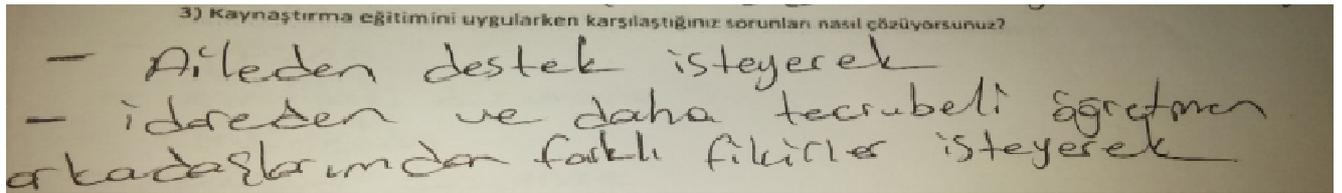 3) Kaynaştırma eğitimini uygularken karşılaştığınız sorunları nasıl çözüyorsunuz?
- Aileden destek isteyerek
- idareden ve daha tecrubeli öğretmen
arkadaşlarımdan farklı fikirler isteyerek